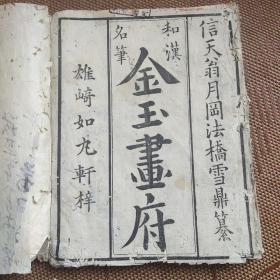 信天翁月岡法橋雪鼎纂
和漢
名筆
金玉畫府
雄﨑如九軒梓